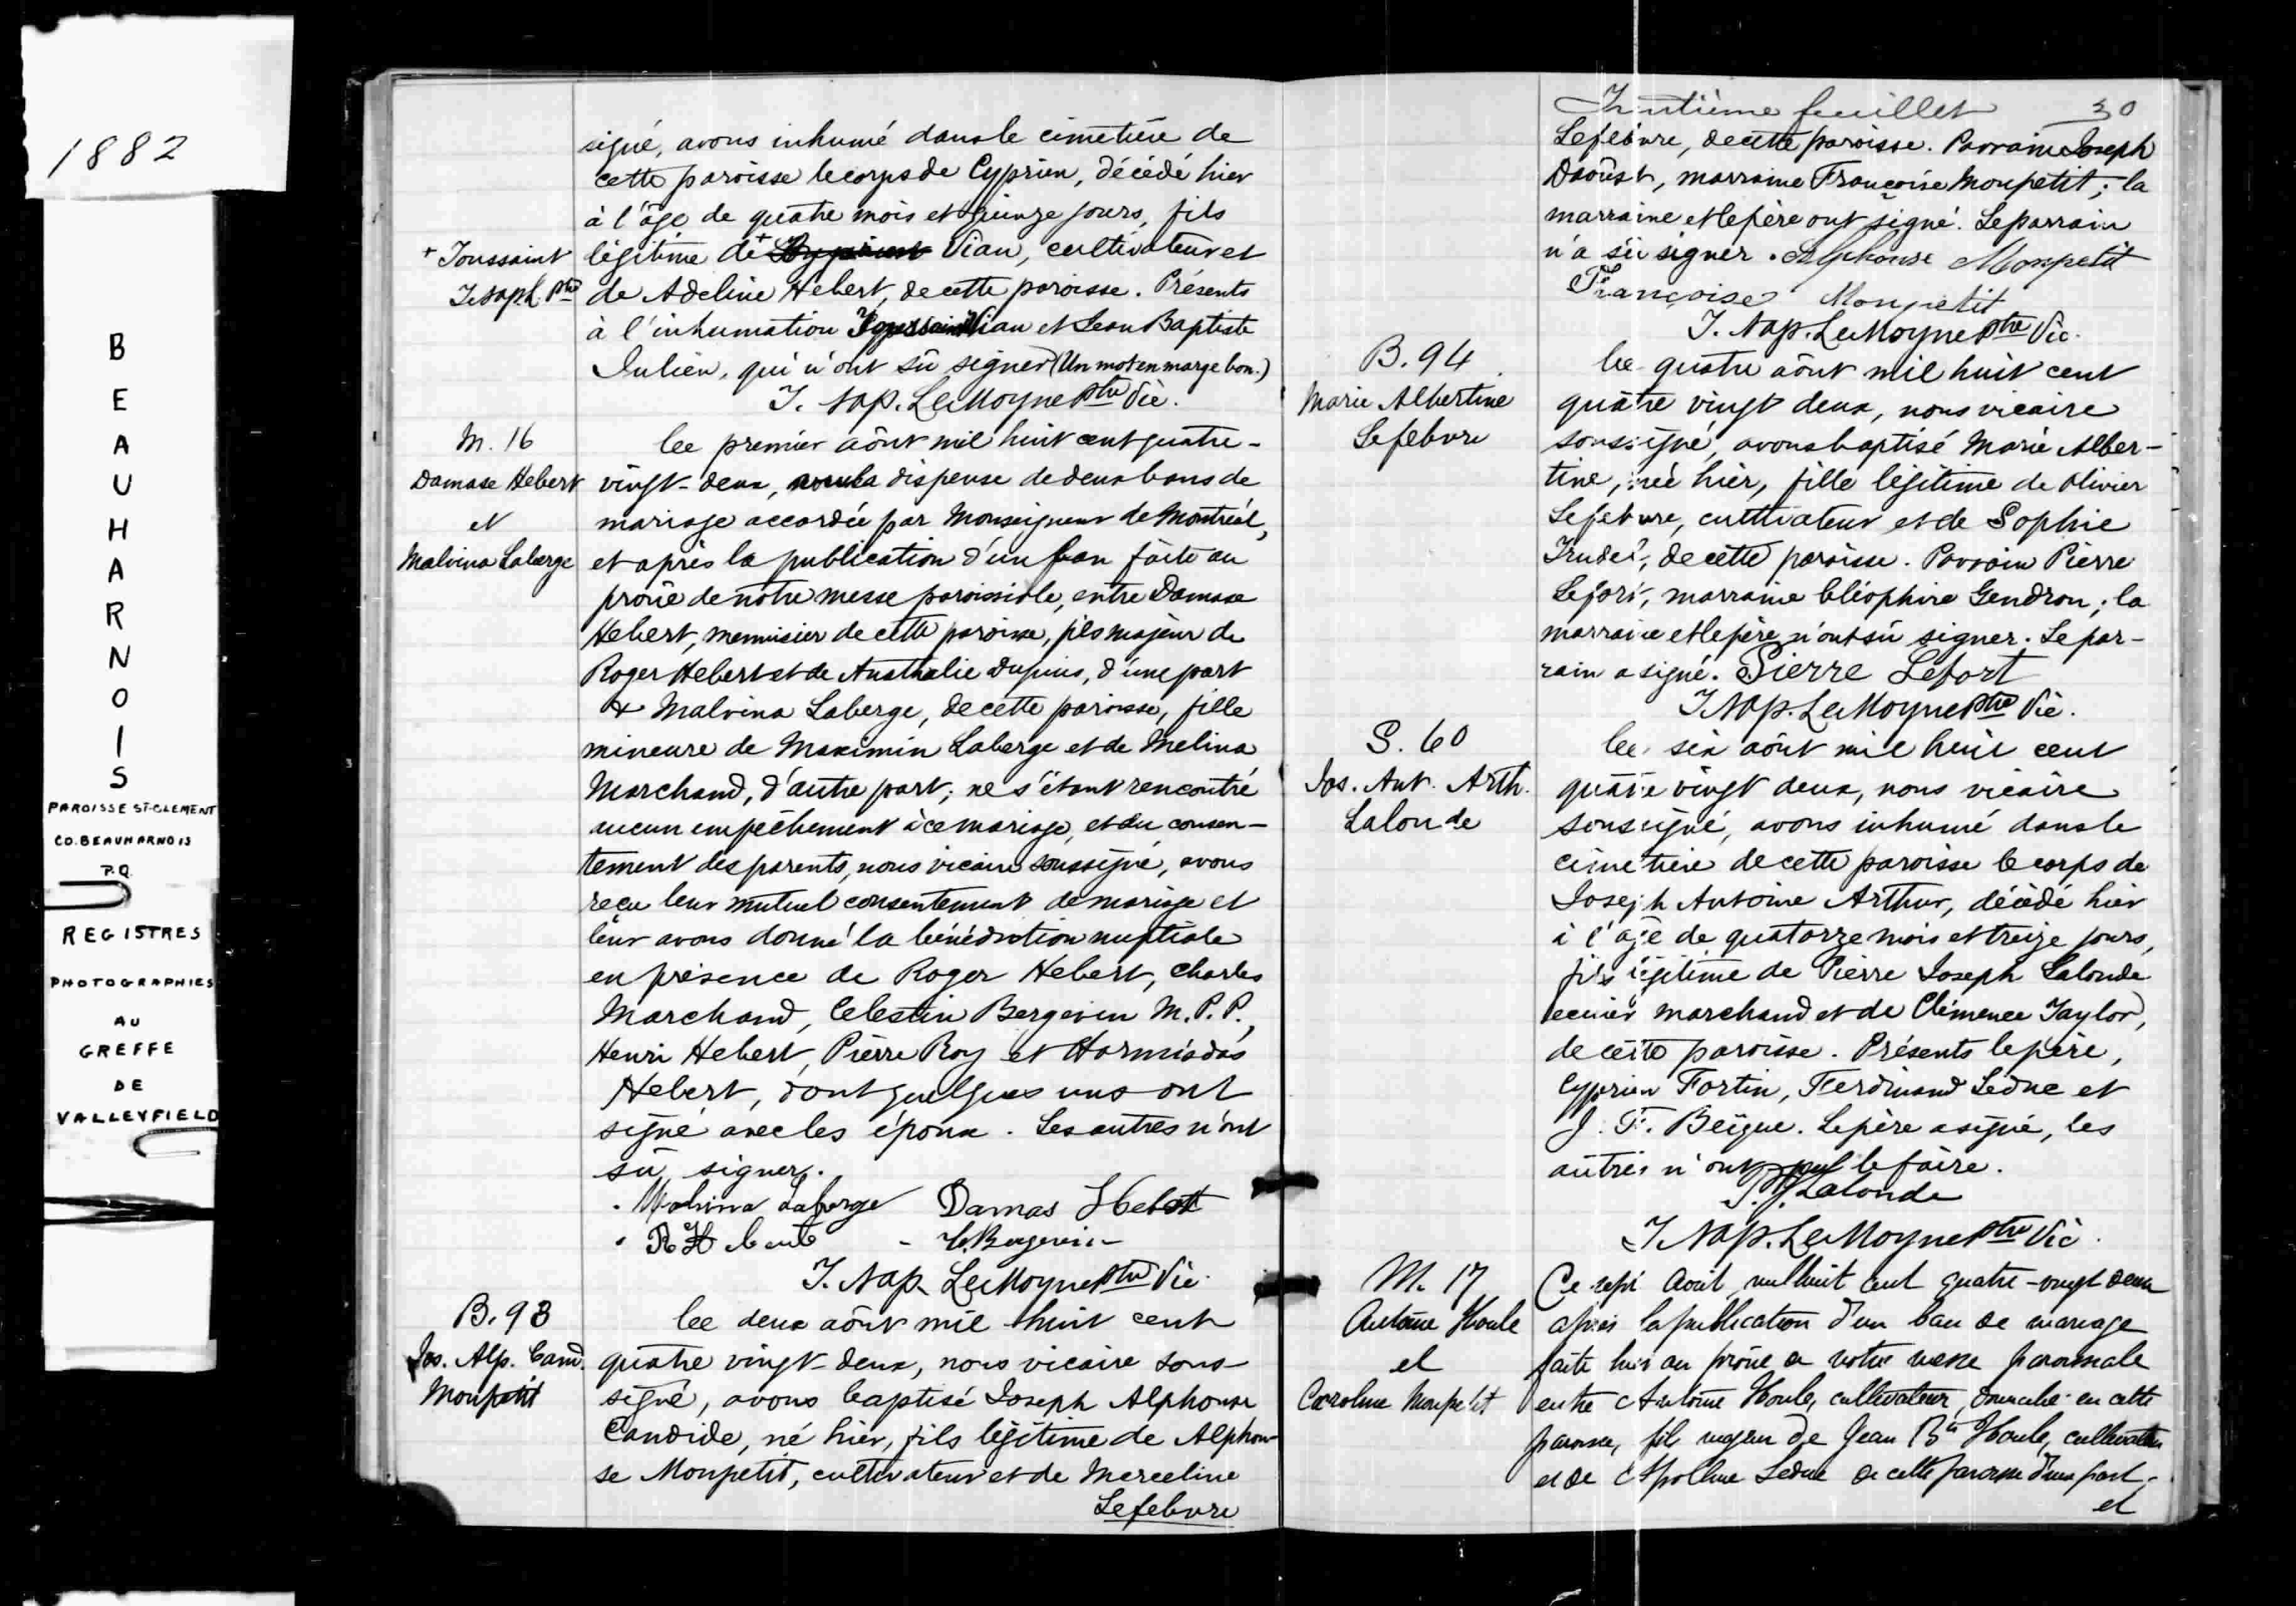 1882
BEAUHARNOIS
PAROISSE ST-CLEMENT
CO. BEAUHARNOIS
P.Q.
REGISTRES
PHOTOGRAPHIES
AU
GREFFE
DE
VALLEYFIELD
signé, avons inhumé dans le cimetière de
cette paroisse le corps de Cyprien, décédé hier
à l'âge de quatre mois et quinze jours, fils
+ Toussaint
légitime de + Vian, cultivateur et
J. Noph. Ptre
de Adeline Hebert, de cette paroisse. Présents
à l'inhumation Toussaint Vian et Jean Baptiste
Julien, qui n'ont sû signer (Un mot en marge bon.)
J. Nap. LeMoyne Ptre Vic.
M. 16
Damase Hebert
et
Malvina Laberge
Ce premier août mil huit cent quatre-
vingt-deux, vu la dispense de deux bans de
mariage accordée par Monseigneur de Montréal,
et après la publication d'un ban faite au
prône de notre messe paroissiale, entre Damase
Hebert, menuisier de cette paroisse, fils majeur de
Roger Hebert et de Anathalie Dupuis, d'une part
& Malvina Laberge, de cette paroisse, fille
mineure de Maximin Laberge et de Melina
Marchand, d'autre part; ne s'étant rencontré
aucun empêchement à ce mariage, et du consen-
tement des parents, nous vicaire soussigné, avons
reçu leur mutuel consentement de mariage et
leur avons donné la bénédiction nuptiale
en présence de Roger Hebert, Charles
Marchand, Celestin Bergevin M.P.P.,
Henri Hebert, Pierre Roy et Hormisdas
Hebert, dont quelques uns ont
signé avec les époux. Les autres n'ont
sû signer.
Malvina Laberge Damas Hebert
R Hebert C. Bergevin
J. Nap. LeMoyne Ptre Vic.
B. 93
Jos. Alp. Cand.
Monpetit
Ce deux août mil huit cent
quatre vingt-deux, nous vicaire sous-
signé, avons baptisé Joseph Alphonse
Candide, né hier, fils légitime de Alphon-
se Monpetit, cultivateur et de Merceline
Lefebvre
Trentième feuillet 30
Lefebvre, de cette paroisse. Parrain Joseph
Daoust, marraine Françoise Monpetit; la
marraine et le père ont signé. Le parrain
n'a sû signer. Alphonse Monpetit
Françoise Monpetit
J. Nap. LeMoyne Ptre Vic.
B. 94
Marie Albertine
Lefebvre
Ce quatre août mil huit cent
quatre vingt deux, nous vicaire
soussigné, avons baptisé Marie Alber-
tine, née hier, fille légitime de Olivier
Lefebvre, cultivateur et de Sophie
Trudel, de cette paroisse. Parrain Pierre
Lefort, marraine Cléophire Gendron; la
marraine et le père n'ont sû signer. Le par-
rain a signé. Pierre Lefort
J Nap. LeMoyne Ptre Vic.
S. 60
Jos. Ant. Arth.
Lalonde
Ce six août mil huit cent
quatre vingt deux, nous vicaire
soussigné, avons inhumé dans le
cimetière de cette paroisse le corps de
Joseph Antoine Arthur, décédé hier
à l'âge de quatorze mois et treize jours,
fils légitime de Pierre Joseph Lalonde
ecuier marchand et de Clémence Taylor,
de cette paroisse. Présents le père,
Cyprien Fortin, Ferdinand Leduc et
J. F. Beïque. Le père a signé, les
autres n'ont pu le faire.
P. J. Lalonde
J Nap. LeMoyne Ptre Vic.
M. 17
Antoine Houle
et
Caroline Monpetit
Ce sept Août mil huit cent quatre-vingt deux
après la publication d'un ban de mariage
faite hier au prône de notre messe paroissiale
entre Antoine Houle, cultivateur, domicilié en cette
paroisse, fils majeur de Jean Bte Houle, cultivateur
et de Apolline Leduc de cette paroisse d'une part,
et